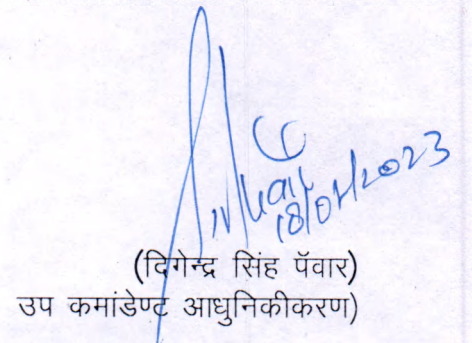 18/01/2023
(दिगेन्द्र सिंह पॅवार)
उप कमांडेण्ट आधुनिकीकरण)